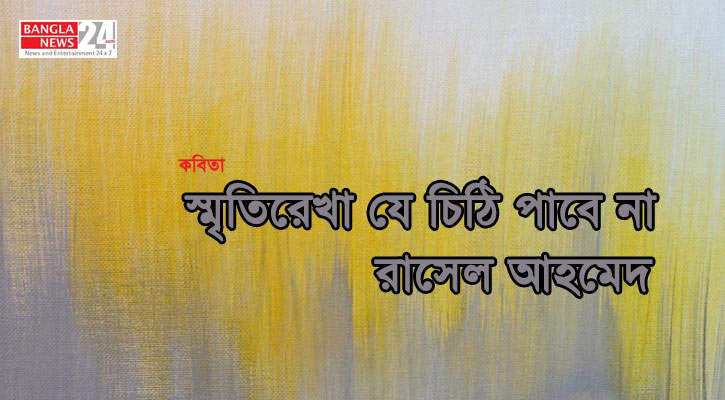 BANGLA
NEWS 24
News and Entertainment 24 x 7
কবিতা
স্মৃতিরেখা যে চিঠি পাবে না
রাসেল আহমেদ